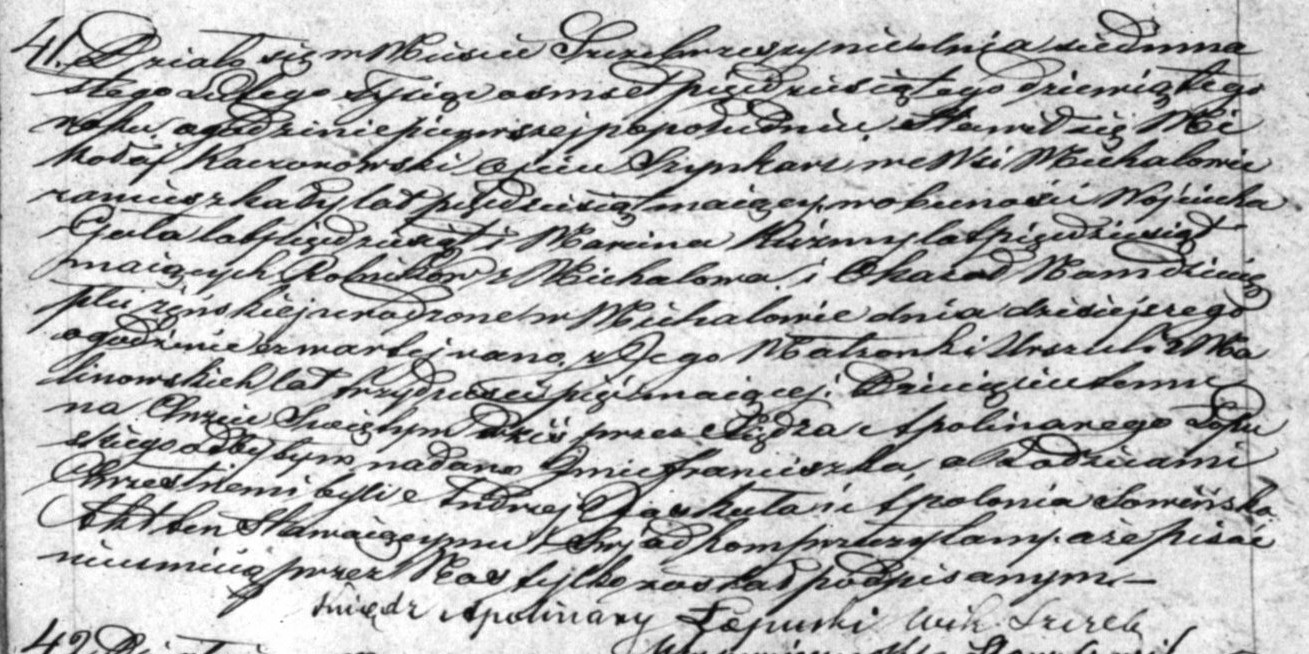 41. Działo się w Mieście Szczebrzeszynie dnia siedmna
stego Lutego Tysiąc osmset pięćdziesiątego dziewiątego
roku, o godzinie pierwszej po południu. Stawił się Mi
kołaj Kaczorowski Ojciec Szynkarz we Wsi Michalowie
zamieszkały lat pięćdziesiąt maiący, w obecności Wojciecha
Guta lat pięćdziesiąt i Marcina Kuźmy lat pięćdziesiąt
maiących Rolników z Michalowa, i Okazał Nam dziecię
płci żeńskiej urodzone w Michalowie dnia dzisiejszego
o godzinie czwartej rano, z Jego Małżonki Urszuli z Ma
linowskich lat trzydzieści pięć maiącej. Dziecięciu temu
na Chrzcie Świętym dziś przez Xiędza Apolinarego Łopu
skiego odbytym nadano Imie Franciszka, a Rodzicami
Chrzestnemi byli Andrzej i Apolonia Sowińska.
Akt ten Stawaiącymu i Świadkom przeczytany, a że pisać
nieumieią przez Nas tylko został podpisanym.—
Xsiądz Apolinary Łopuski Wik. Szczeb
42. Działo